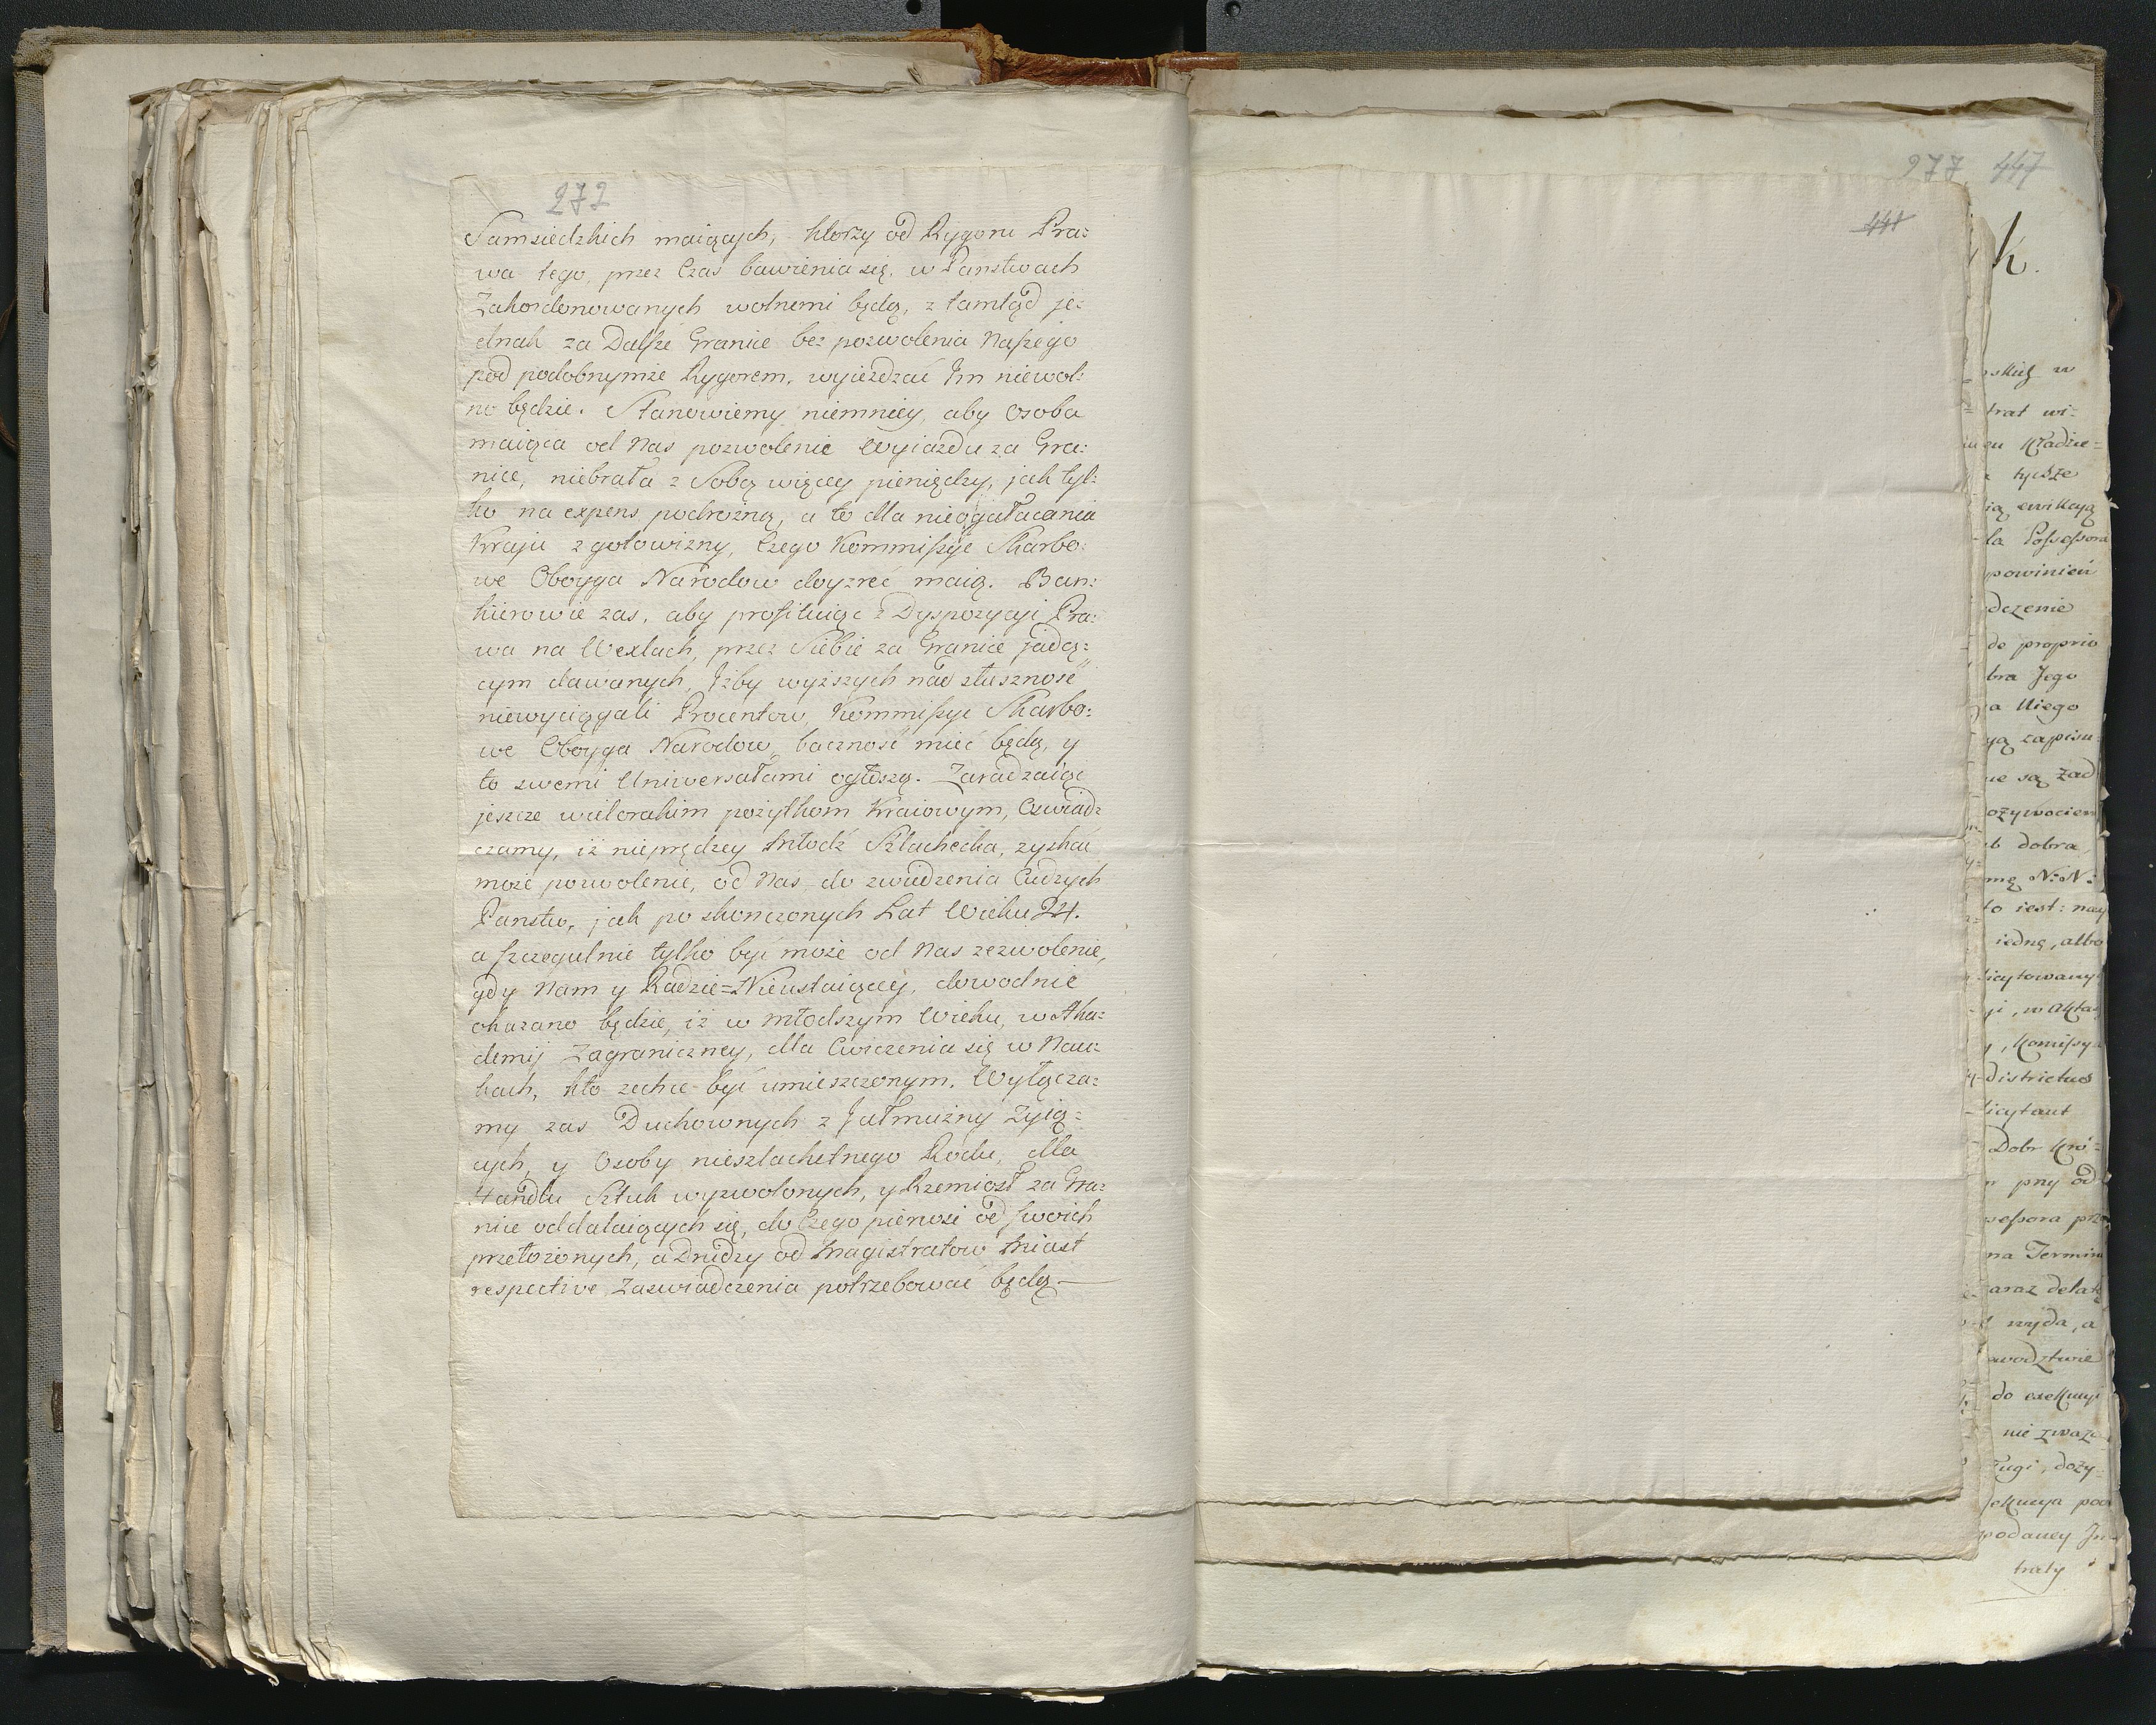 272
Samsiedzkich maiących, ktorzy od Rygoru Pra:
wa tego, przez Czas bawienia się, w Panstwach
Zakordonowanych wolnemi będą, z tamtąd je:
dnak za Dalsze Granice bez pozwolenia Naszego
pod podobnymże Rygorem, wyieżdzać Im niewol:
no będzie. Stanowiemy niemniey, aby Osoba
maiąca od Nas pozwolenie Wyiazdu za Gra:
nice, niebrała z Sobą więcey pieniędzy, jak tyl:
ko na expens podrożną, a to dla nieogałacania
Kraju z gotowizny, Czego Kommiszye Skarbo:
we Oboyga Narodow doyzreć maią. Ban:
kierowie zas, aby profituiąc z Dyspozycyi Pra:
wa na Wexlach, przez Siebie za Granice jadą:
cym dawanych, Iżby wyższych nad słusznosć
niewyciągali Procentow, Kommiszye Skarbo:
we Oboyga Narodow, bacznosć mieć będą, y
to swemi Uniwersałami ogłoszą. Zaradzaiąc
jeszcze wielorakim pożytkom Kraiowym, Oswiad:
czamy, iż nieprędzey Młodź Szlachecka, zyskać
może pozwolenie, od Nas do zwiedzenia Cudzych
Panstw, jak po skonczonych Lat Wieku 24.
a szczegulnie tylko być może od Nas zezwolenie,
gdy Nam y Radzie=Nieustaiącey, dowodnie
okazano będzie, iż w młodszym Wieku, w Aka:
demij Zagraniczney, dla Cwiczenia się w Nau:
kach, kto zechce być umieszczonym. Wyłącza:
my zas Duchownych z Jałmużny Zyią:
cych, y Osoby nieszlachetnego Rodu, dla
Handlu Sztuk wyzwolonych, y Rzemiosł za Gra:
nice oddalaiących się, do Czego pierwsi od swoich
przełożonych, a Drudzy od Magistratow Miast
respective Zaswiadczenia potrzebować będą.
277 447
441
k.
w
trat wi:
Kładzie=
tychże
ewikcyą
la Possessora
powinień
dczenie
de proprio
bra Jego
a Niego
zapisu:
są zad
dobra,
N: N:
to iest: nay
iedną, albo
w Aktach
districtus
licytant
Dobr Kró=
przy od
na Termin
zaraz delat
wyda, a
do exekucyi
nie zważa
dozy=
podaney In
traty